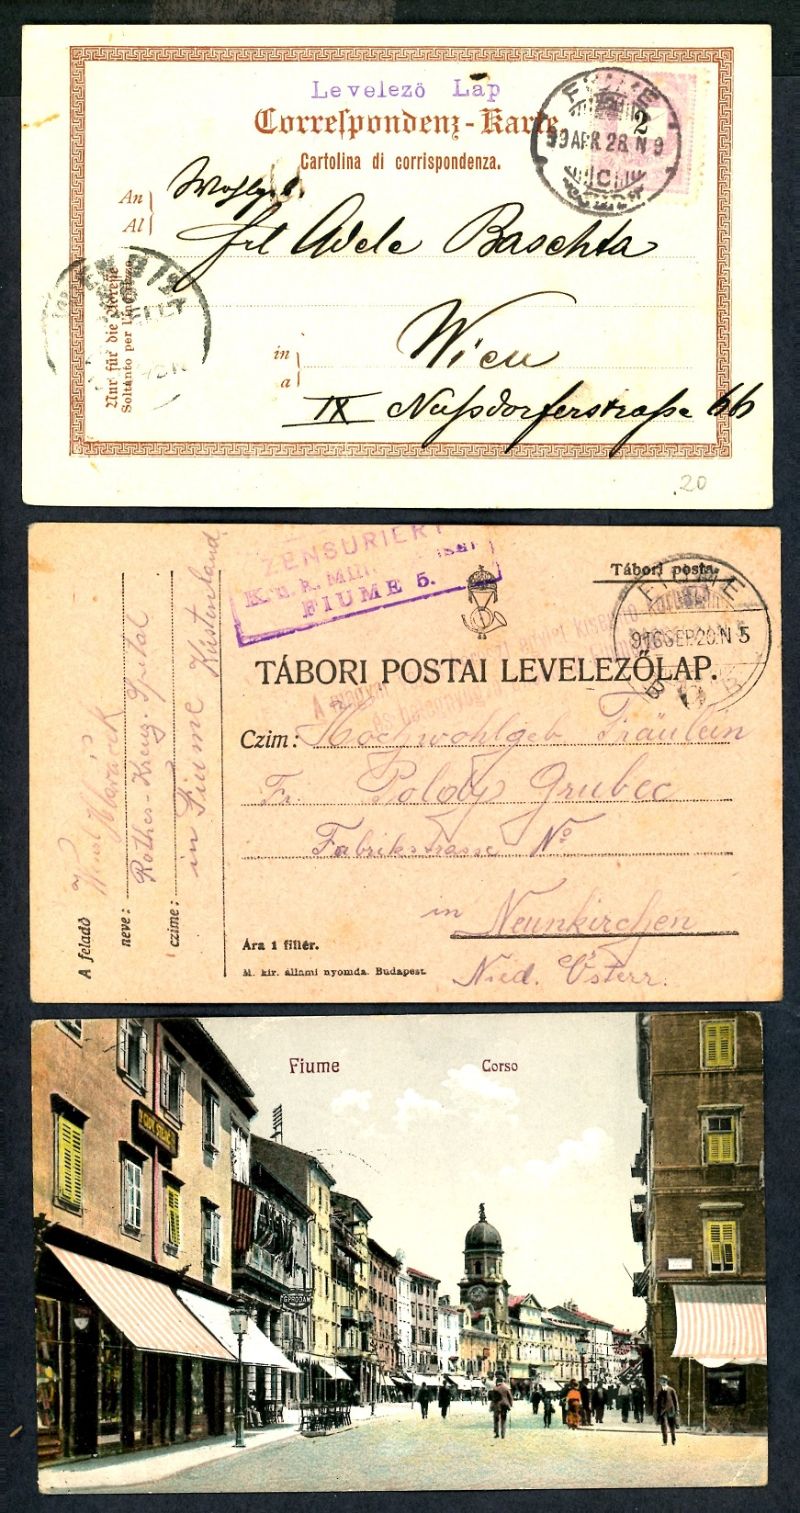 Levelezö Lap
Correspondenz-Karte
Cartolina di corrispondenza.
FIUME
99 APR. 28. N 9
C
2
An
Al
Wohlgeb.
Frl Adele Baschta
in
a
Wien
IX Nußdorferstraße 66
Nur für die Adresse
Soltanto per l'indirizzo
20
ZENSURIERT
K. u. k.
FIUME 5.
Tábori posta.
FIUME
916 SEP. 20. N 5
TÁBORI POSTAI LEVELEZŐLAP.
A magyar
Czim: Hochwohlgeb. Fräulein
Fr. Poldy Grubec
Fabrikstrasse No
in Neunkirchen
Nied. Österr.
Ára 1 fillér.
M. kir. állami nyomda. Budapest.
A feladó
neve:
Rothes-Kreuz-Spital
czime:
in Fiume Küstenland
Fiume Corso